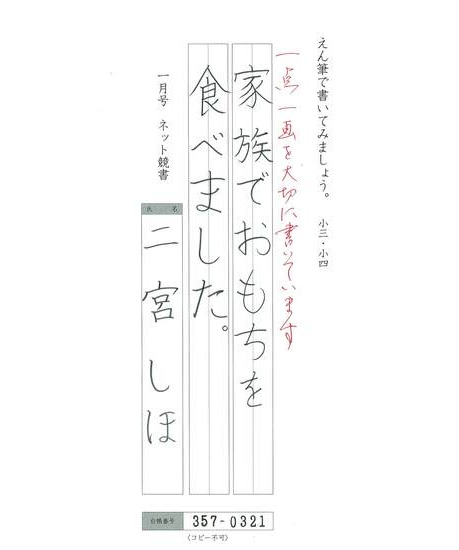 えん筆で書いてみましょう。 小三・小四
一点一画を大切に書いています
家族でおもちを
食べました。
一月号 ネット競書
氏 名
二宮しほ
会員番号 357-0321
(コピー不可)